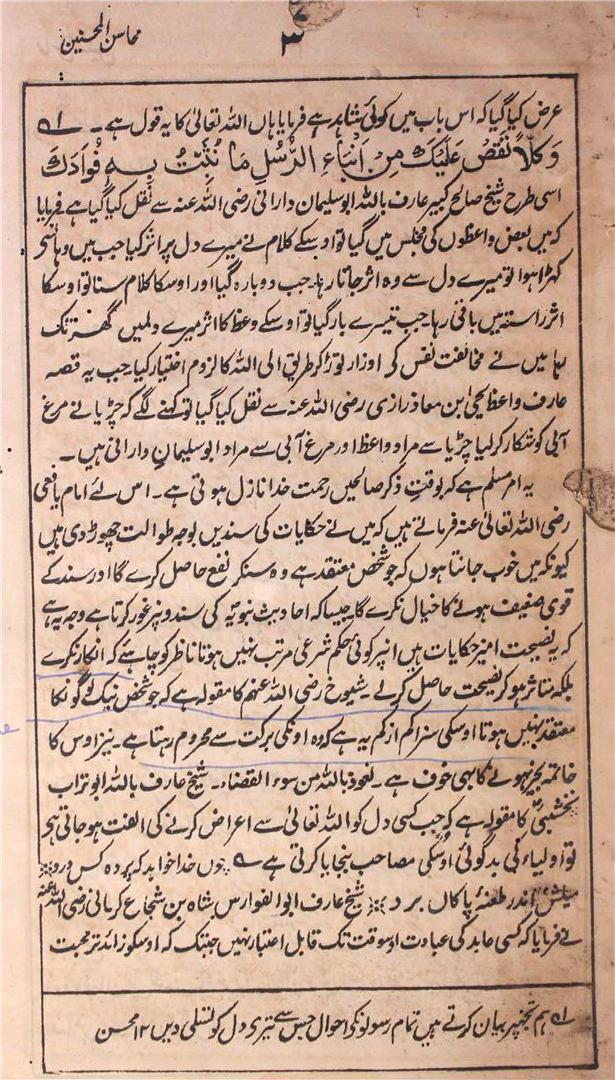 محاسن المحسنین
۳
عرض کیا گیا کہ اس باب میں کوئی شاہد ہے فرمایا ہاں اللہ تعالیٰ کا یہ قول ہے۔ لہ
وَكُلًّا نَقُصُّ عَلَيْكَ مِنْ أَنْبَاءِ الرُّسُلِ مَا نُثَبِّتُ بِهِ فُؤَادَكَ
اسی طرح شیخ صالح کبیر عارف باللہ ابو سلیمان دارانی رضی اللہ عنہ سے نقل کیا گیا ہے فرمایا
کہ میں بعض واعظوں کی مجلس میں گیا تو اوسکے کلام نے میرے دل پر اثر کیا جب میں وہانسے
کہڑا ہوا تو میرے دل سے وہ اثر جاتا رہا۔ جب دوبارہ گیا اور اوسکا کلام سنا تو اوسکا
اثر راستہ میں باقی رہا۔ جب تیسرے بار گیا تو اوسکے وعظ کا اثر میرے دلمیں گھر تک
رہا میں نے مخالفت نفس کی اوزار توڑ کر طریق الی اللہ کا لزوم اختیار کیا جب یہ قصہ
عارف واعظ یحیی ابن معاذ رازی رضی اللہ عنہ سے نقل کیا گیا تو کہنے لگے کہ چڑیا نے مرغ
آبی کو شکار کر لیا چڑیا سے مراد واعظ اور مرغ آبی سے مراد ابو سلیمان دارانی ہیں۔
یہ امر مسلم ہے کہ بوقت ذکر صالحین رحمت خدا نازل ہوتی ہے۔ اس لئے امام یافعی
رضی اللہ تعالیٰ عنہ فرماتے ہیں کہ میں نے حکایات کی سندیں بوجہ طوالت چھوڑ دی ہیں
کیونکہ میں خوب جانتا ہوں کہ جو شخص معتقد ہے وہ سنکر نفع حاصل کرے گا اور سند کے
قوی ضعیف ہونے کا خیال نکرے گا۔ جیسا کہ احادیث نبویہ کی سندونپر غور کرتا ہے وجہ یہ ہے
کہ یہ نصیحت امیز حکایات ہیں انپر کوئی حکم شرعی مرتب نہیں ہوتا ناظر کو چاہئے کہ انکار نکرے
بلکہ متاثر ہو کر نصیحت حاصل کر لے۔ شیوخ رضی اللہ عنہم کا مقولہ ہے کہ جو شخص نیک لوگونکا
معتقد نہیں ہوتا اوسکی سزا کم از کم یہ ہے کہ وہ اونکی برکت سے محروم رہتا ہے۔ نیز اوس کا
خاتمہ بخیر نہونے کا بھی خوف ہے۔ نعوذ باللہ من سوء القضاء۔ شیخ عارف باللہ ابو تراب
نخشبیؒ کا مقولہ ہے کہ جب کسی دل کو اللہ تعالیٰ سے اعراض کرنے کی الفت ہو جاتی ہی
تو اولیاء کی بدگوئی اوسکی مصاحب بنجایا کرتی ہے چوں خدا خواہد کہ پردہ کس درد
میلش اندر طعنۂ پاکاں برد شیخ عارف ابو الفوارس شاہ بن شجاع کرمانی رضی اللہ عنہ
نے فرمایا کہ کسی عابد کی عبادت اوسوقت تک قابل اعتبار نہیں جبتک کہ اوسکو زائد تر محبت
لہ ہم تجھپر بیان کرتے ہیں تمام رسولونکی احوال جس سے تیری دل کو تسلی دیں ۱۲ محسن